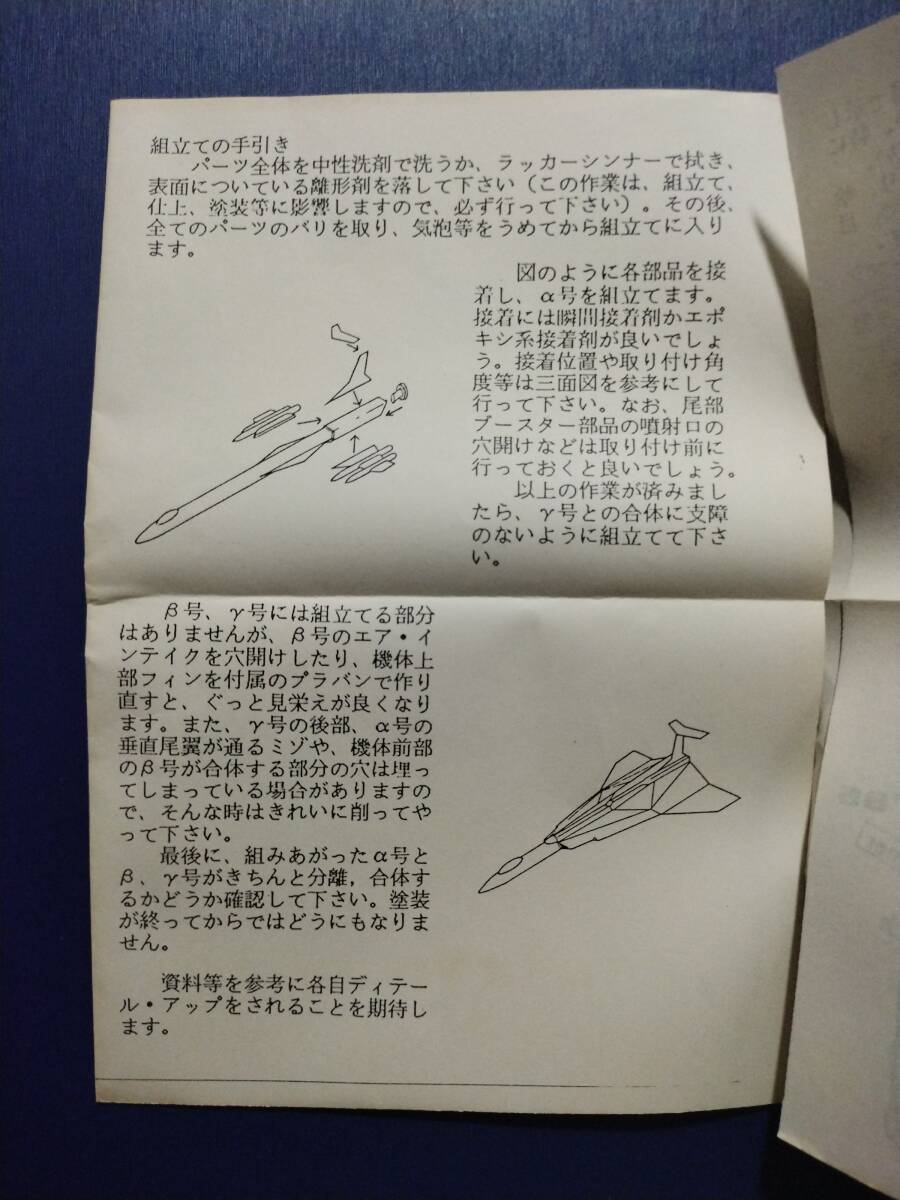 組立ての手引き
パーツ全体を中性洗剤で洗うか、ラッカーシンナーで拭き、
表面についている離形剤を落して下さい（この作業は、組立て、
仕上、塗装等に影響しますので、必ず行って下さい）。その後、
全てのパーツのバリを取り、気泡等をうめてから組立てに入り
ます。
図のように各部品を接
着し、α号を組立てます。
接着には瞬間接着剤かエポ
キシ系接着剤が良いでしょ
う。接着位置や取り付け角
度等は三面図を参考にして
行って下さい。なお、尾部
ブースター部品の噴射口の
穴開けなどは取り付け前に
行っておくと良いでしょう。
以上の作業が済みまし
たら、γ号との合体に支障
のないように組立てて下さ
い。
β号、γ号には組立てる部分
はありませんが、β号のエア・イ
ンテイクを穴開けしたり、機体上
部フィンを付属のプラバンで作り
直すと、ぐっと見栄えが良くなり
ます。また、γ号の後部、α号の
垂直尾翼が通るミゾや、機体前部
のβ号が合体する部分の穴は埋っ
てしまっている場合がありますの
で、そんな時はきれいに削ってや
って下さい。
最後に、組みあがったα号と
β、γ号がきちんと分離，合体す
るかどうか確認して下さい。塗装
が終ってからではどうにもなりま
せん。
資料等を参考に各自ディテー
ル・アップをされることを期待し
ます。